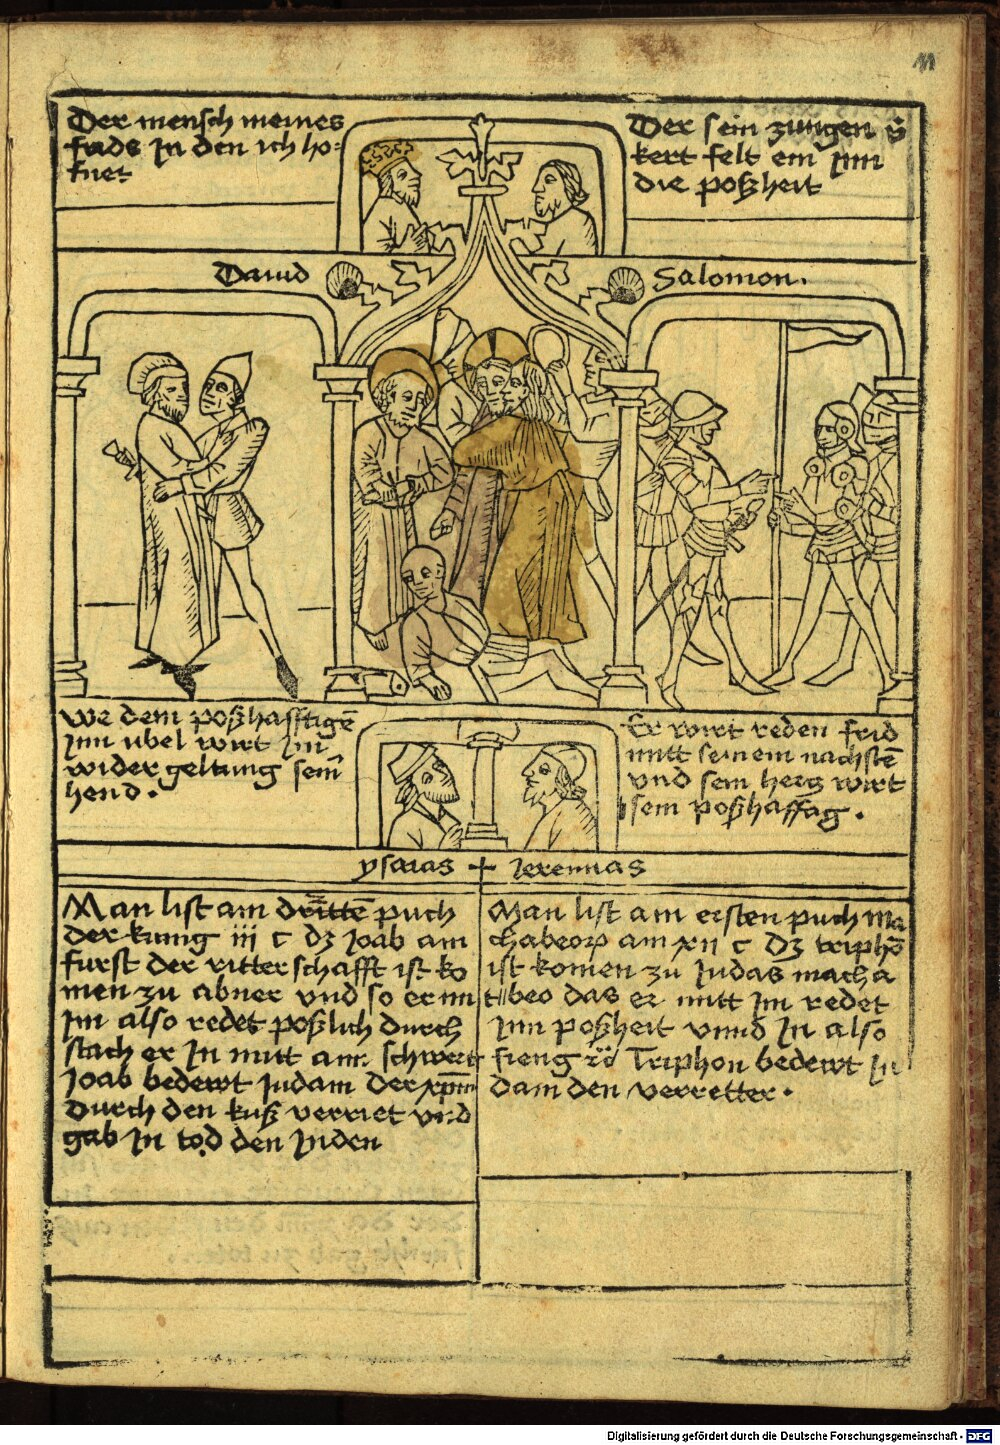 Der mensch meines
frids In den ich hof-
fnet
Der sein zungen v̄
kert felt ein Inn
die poßheit
Dauid
Salomon.
we dem poßhafftigē
Inn ubel wirt Im
wider geltung seiñ
hend.
Er wirt reden frid
mitt seinem nachstē
vnd sein hercz wirt
sein poßhafftig.
ysaias + Ieremias
Man list am dritten puch
der kunig iii c dz Ioab am
furst der ritterschafft ist ko
men zu abner vnd so er mit
Im also redet poßlich durch
stach er In mitt am schwert
Ioab bedewt Iudam der xpm̄
durch den kuß verriet vnd
gab In tod den Juden
Man list am ersten puch Ma
chabeorum am xii c dz triphō
ist komen zu Iudas macha
beo das er mitt Im redet
Inn poßheit vnnd In also
fieng Triphon bedewt Iu
dam den verretter.
Digitalisierung gefördert durch die Deutsche Forschungsgemeinschaft - DFG